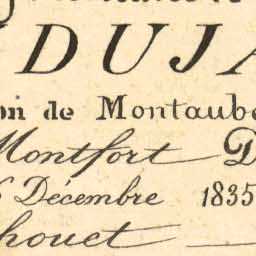 DUJA
on de Montaube
Montfort D
6 Décembre 1835
houet